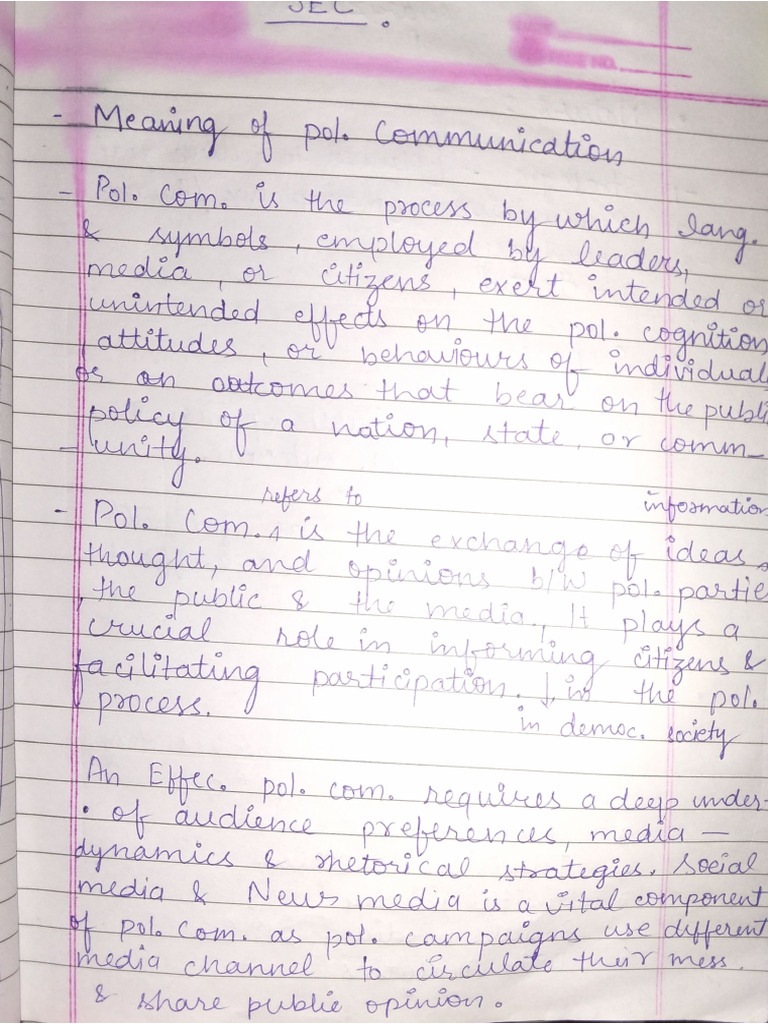 SEC.
PAGE NO.
- Meaning of pol. Communication
- Pol. Com. is the process by which lang.
& symbols, employed by leaders,
media, or citizens, exert intended or
unintended effects on the pol. cognition
attitudes, or behaviours of individual
or on outcomes that bear on the publi
policy of a nation, state, or comm-
unity.
refers to information
- Pol. Com. is the exchange of ideas,
thought, and opinions b/w pol. partie
, the public & the media., It plays a
crucial role in informing citizens &
facilitating participation. ↓ in the pol.
process. in democ. society
An Effec. pol. com. requires a deep under-
. of audience preferences, media -
dynamics & rhetorical strategies. Social
media & News media is a vital component
of pol. com. as pol. campaigns use different
media channel to circulate their mess.
& share public opinion.